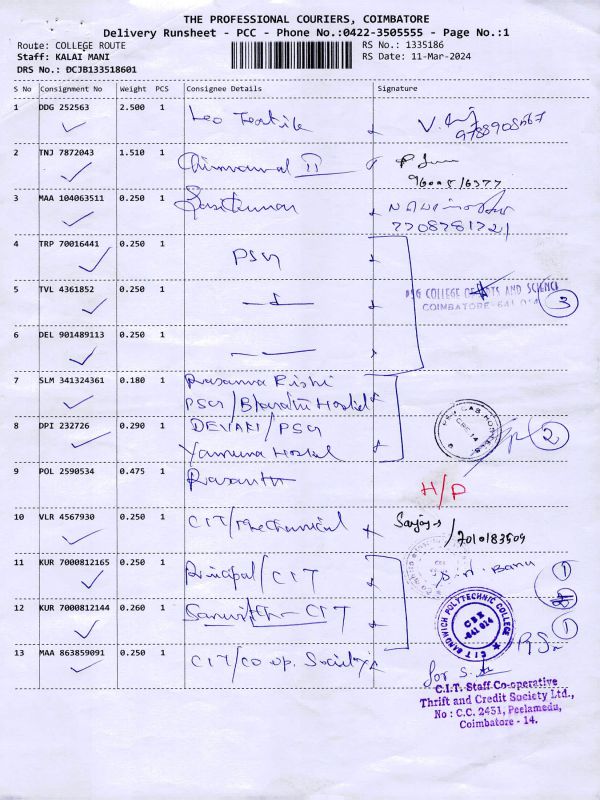 THE PROFESSIONAL COURIERS, COIMBATORE
Delivery Runsheet - PCC - Phone No.:0422-3505555 - Page No.:1
Route: COLLEGE ROUTE
RS No.: 1335186
Staff: KALAI MANI
RS Date: 11-Mar-2024
DRS No.: DCJB133518601
S No Consignment No Weight PCS Consignee Details Signature
1 DDG 252563 2.500 1 Leo Textile
9788908567
2 TNJ 7872043 1.510 1 II
3 MAA 104063511 0.250 1 Sasikumar
7708781721
4 TRP 70016441 0.250 1 PSG
5 TVL 4361852 0.250 1
PSG COLLEGE OF ARTS AND SCIENCE
COIMBATORE-641 014
3
6 DEL 901489113 0.250 1
7 SLM 341324361 0.180 1 Prasanna Rishi
PSG/Bharathi Hostel
8 DPI 232726 0.290 1 DEVAKI/PSG
Yamuna Hostel
2
9 POL 2590534 0.475 1 Prasanth
H/P
10 VLR 4567930 0.250 1 CIT/Mechanical
7010183509
11 KUR 7000812165 0.250 1 Principal/CIT
Banu
1
12 KUR 7000812144 0.260 1 CIT
CIT SANDWICH POLYTECHNIC COLLEGE
CBE
-641 014
1
13 MAA 863859091 0.250 1 CIT/Co op. Society
for S.
C.I.T. Staff Co-operative
Thrift and Credit Society Ltd.,
No : C.C. 2431, Peelamedu,
Coimbatore - 14.